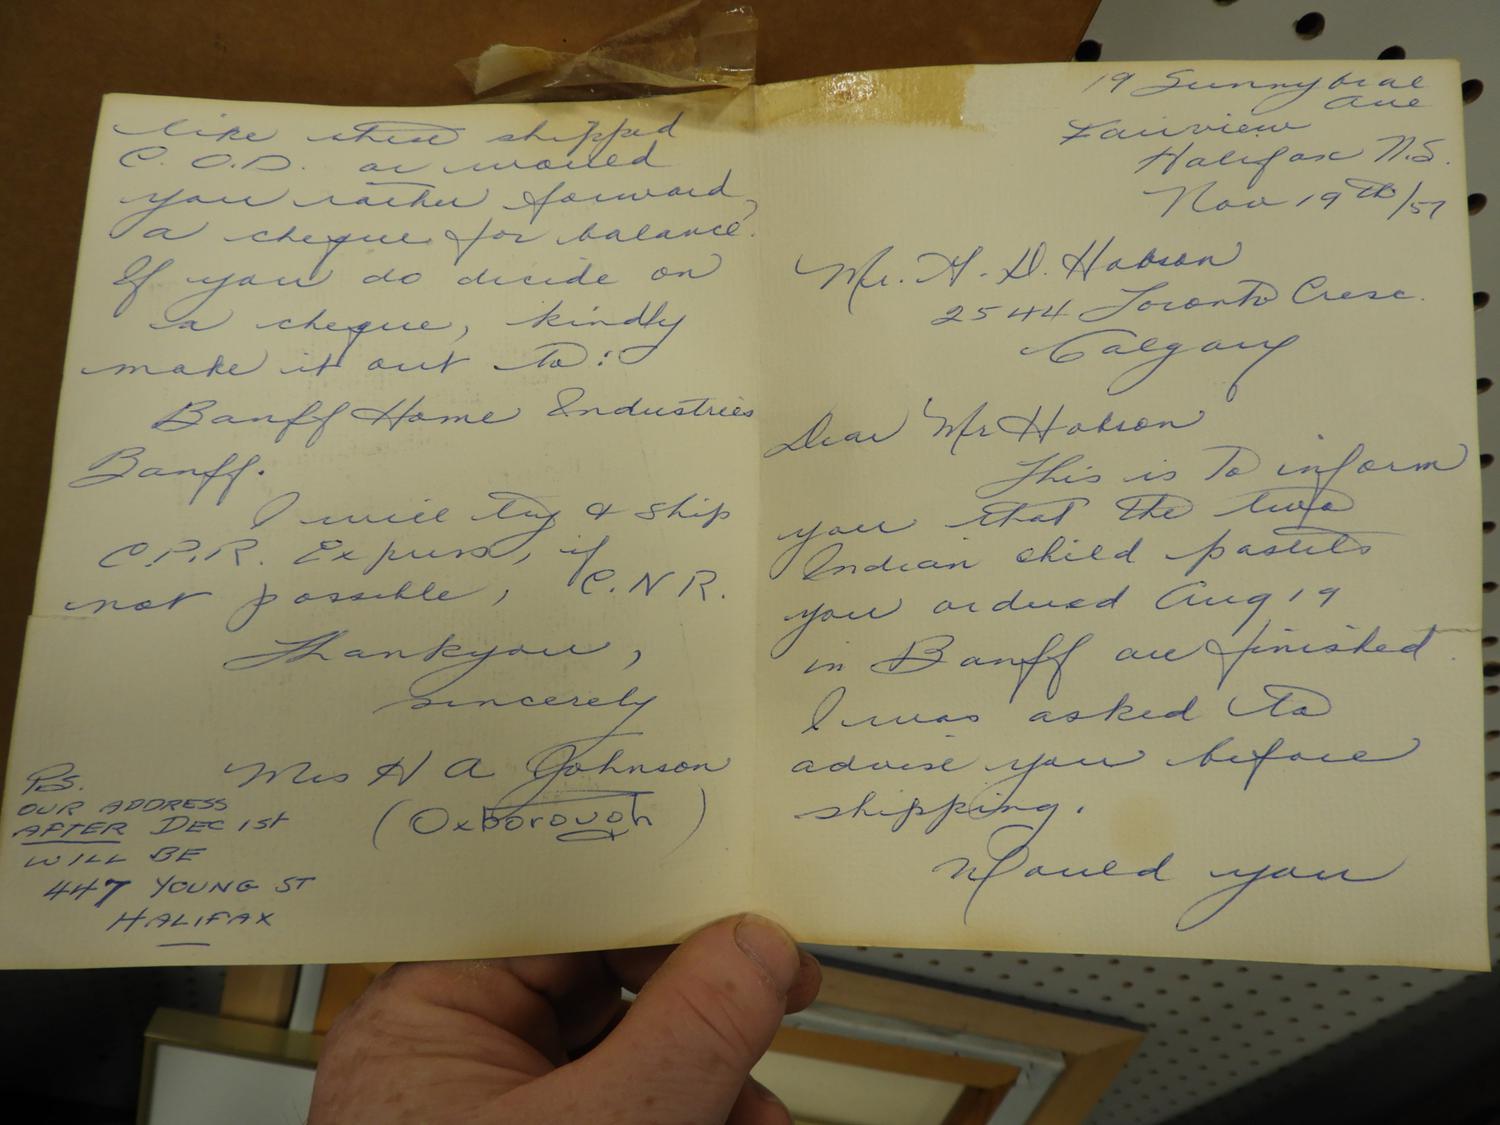 19 Sunnybrae
Ave
Fairview
Halifax N.S.
Nov 19th/57
Mr. H. D. Hobson
2544 Toronto Cresc.
Calgary
Dear Mr Hobson
This is to inform
you that the two
Indian child pastels
you ordered Aug 19
in Banff are finished.
I was asked to
advise you before
shipping.
Would you
like these shipped
C.O.D. or would
you rather forward,
a cheque for balance.
If you do decide on
a cheque, kindly
make it out to:
Banff Home Industries
Banff.
I will try & ship
C.P.R. Express, if
not possible, C.N.R.
Thankyou,
sincerely
Mrs H A Johnson
(Oxborough)
PS.
OUR ADDRESS
AFTER DEC 1ST
WILL BE
447 YOUNG ST
HALIFAX